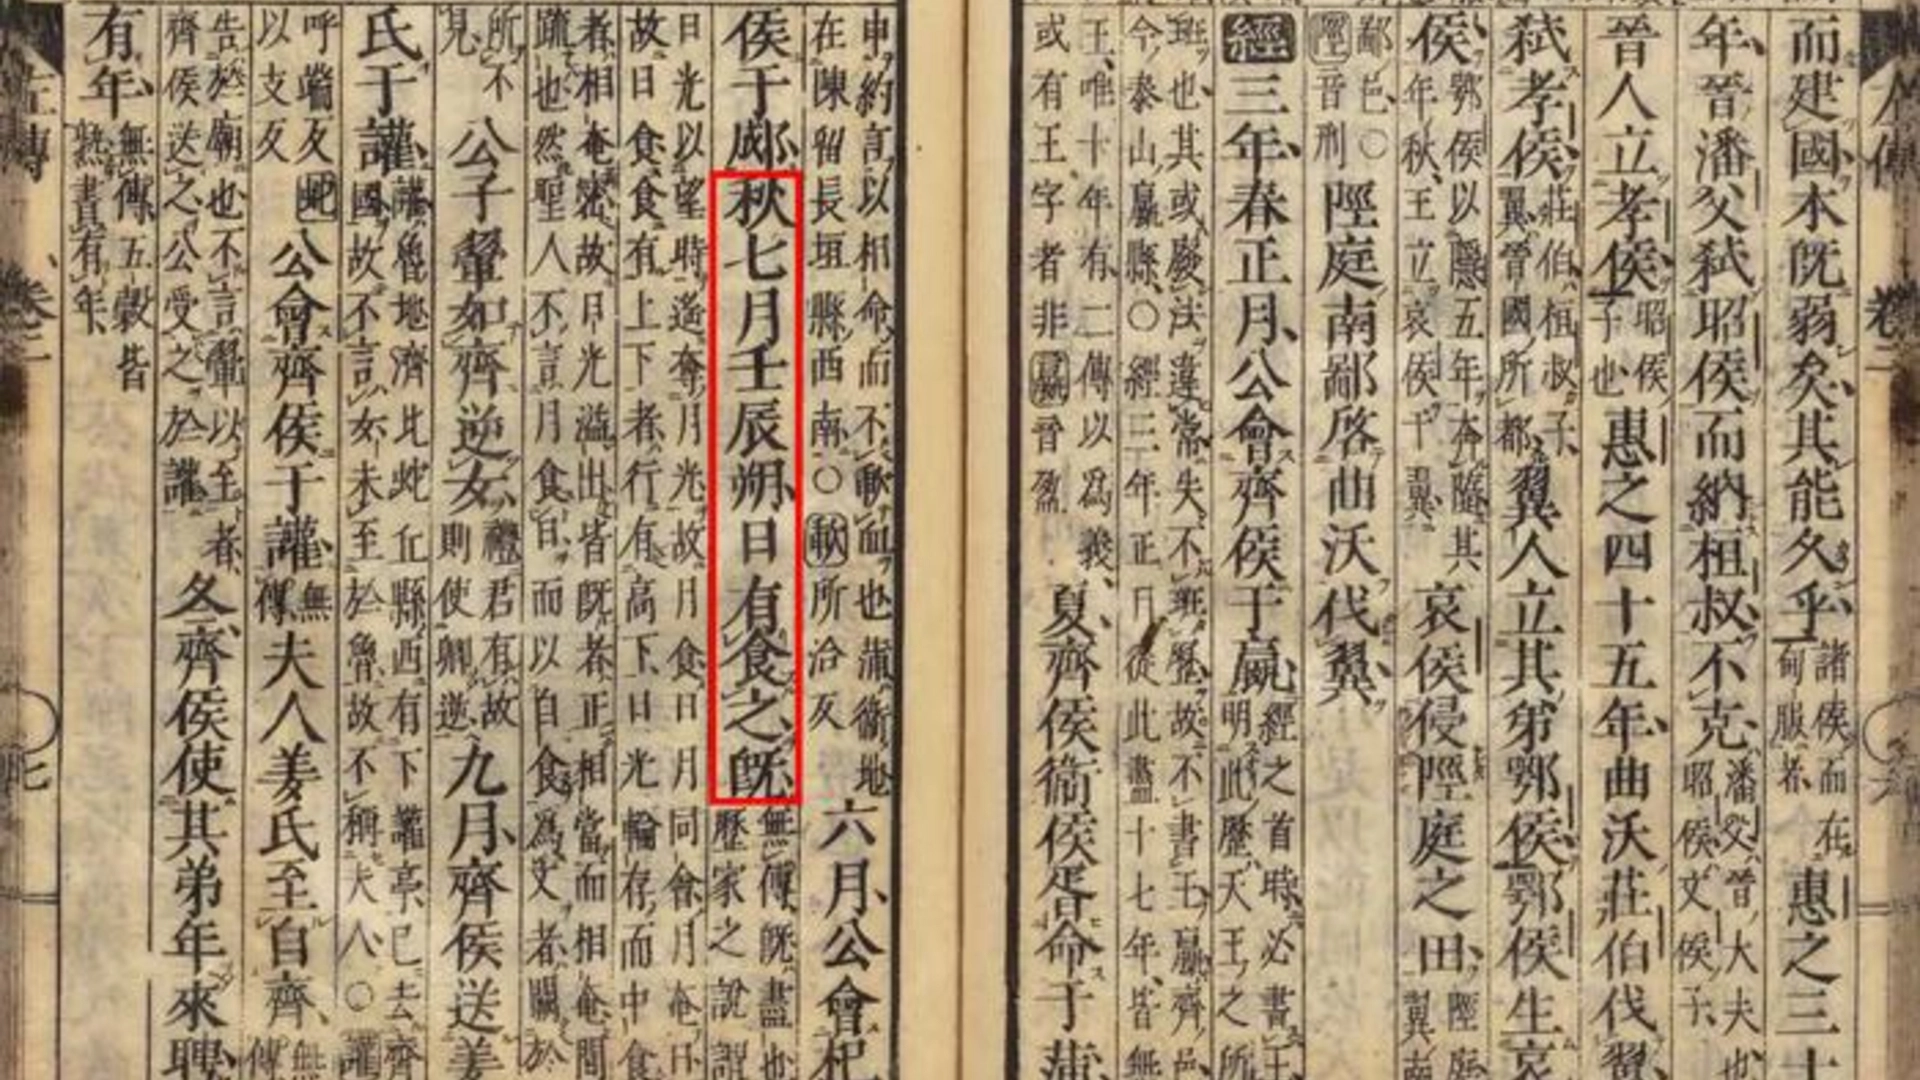 而建國本既弱矣其能久乎諸侯而在甸服者惠之三十
年晉潘父弒昭侯而納桓叔不克潘父晉大夫也昭侯文侯子
晉人立孝侯昭侯子也惠之四十五年曲沃莊伯伐翼
弒孝侯莊伯桓叔子翼晉國所都翼人立其弟鄂侯鄂侯生哀
侯鄂侯以隱五年奔隨其年秋王立哀侯于翼哀侯侵陘庭之田陘庭翼南
鄙邑○陘音刑陘庭南鄙啓曲沃伐翼
經三年春正月公會齊侯于嬴經之首時必書王明此歷天王之所
班也其或廢法違常失不班歷故不書王嬴齊邑今泰山嬴縣○經三年正月從此盡十七年皆無
王唯十年有二傳以爲義或有王字者非嬴音盈夏齊侯衛侯胥命于蒲
申約言以相命而不歃血也蒲衛地在陳留長垣縣西南○歃所洽反六月公會杞
侯于郕秋七月壬辰朔日有食之既無傳既盡也歷家之說
日光以望時遙奪月光故月食日月同會月奄日故日食食有上下者行有高下日光輪存而中食
者相奄密故日光溢出皆既者正相當而相奄間疏也然聖人不言月食日而以自食爲文者闕於
所不見公子翬如齊逆女禮君有故則使卿逆九月齊侯送姜
氏于讙讙魯地濟北蛇丘縣西有下讙亭已去齊國故不言女未至於魯故不稱夫人○讙
呼端反蛇以支反公會齊侯于讙無傳夫人姜氏至自齊無傳
告於廟也不言翬以至者齊侯送之公受之於讙冬齊侯使其弟年來聘
有年無傳五穀皆熟書有年